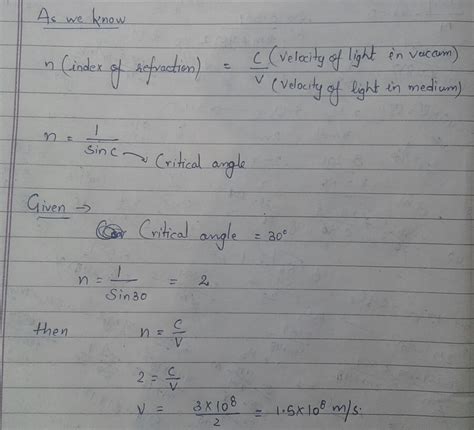 As we know
n (index of refraction) = C/V (velocity of light in vacum) (velocity of light in medium)
n = 1/sinc → Critical angle
Given →
Critical angle = 30°
n = 1/Sin30 = 2
then n = C/V
2 = C/V
V = 3×10⁸/2 = 1.5×10⁸ m/s.